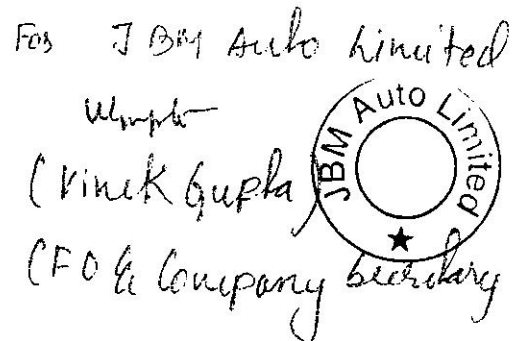 For JBM Auto Limited
(Vivek Gupta)
CFO & Company Secretary
JBM Auto Limited